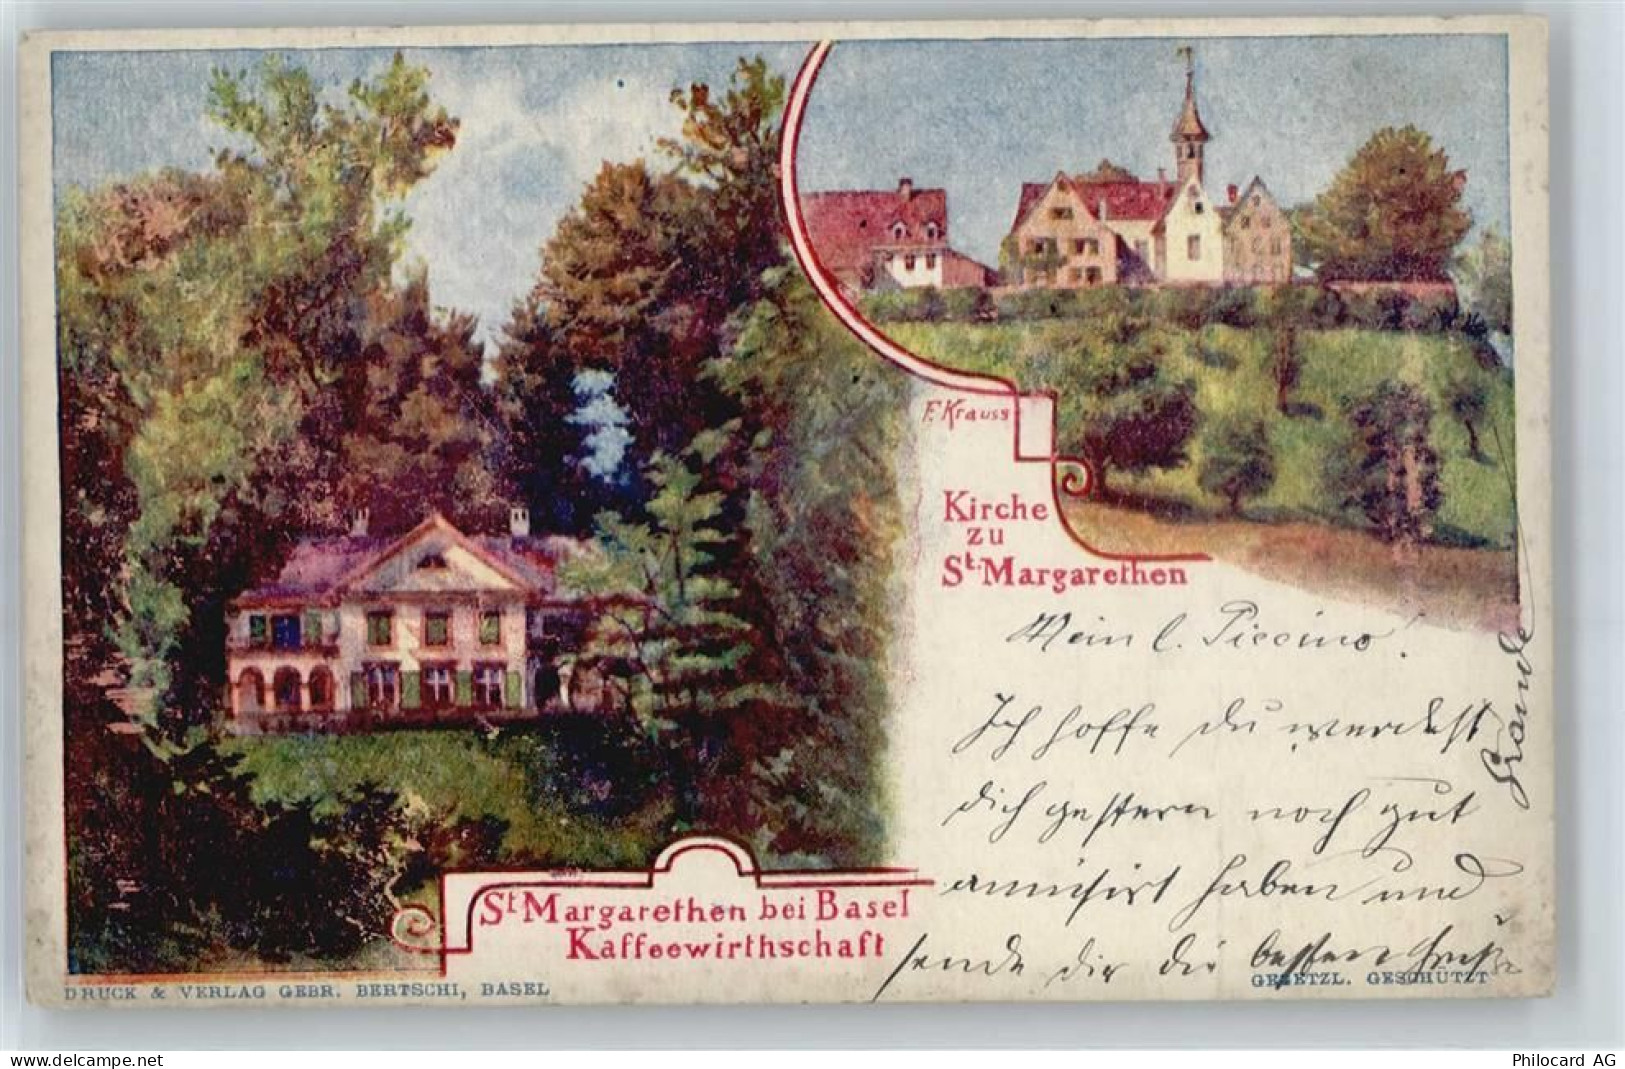 F. Krauss
Kirche
zu
St. Margarethen
Mein l. Piccino!
Ich hoffe du werdest
dich gestern noch gut
amüsirt haben und
sende dir die besten Grüße
St. Margarethen bei Basel
Kaffeewirthschaft
DRUCK & VERLAG GEBR. BERTSCHI, BASEL
GESETZL. GESCHÜTZT
www.delcampe.net
Philocard AG